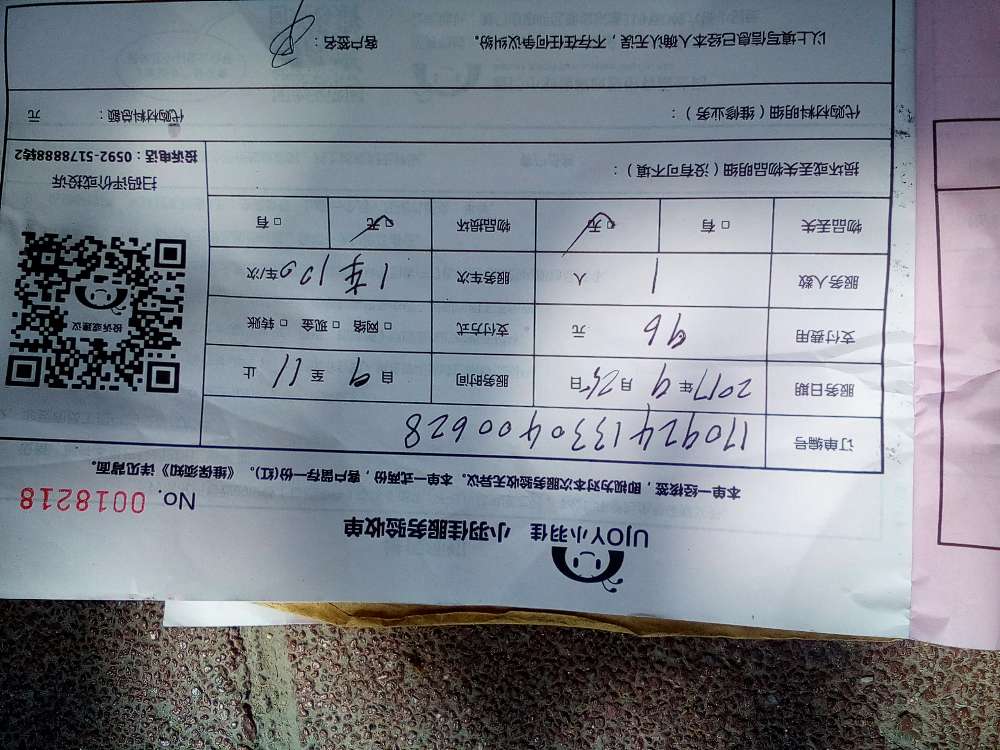 UJOY小羽佳 小羽佳服务验收单
No. 0018218
本单一经接签，即视为对本次服务验收无异议。本单一式两份，客户留存一份(红)。《维保须知》详见背面。
订单编号 1709241330400628
服务日期 2017年9月25日 服务时间 自9至11止
支付费用 96元 支付方式 □网络 □现金 □转账
服务人数 1人 服务车次 1车100车/次
物品丢失 □有 □无 物品损坏 □无 □有
投诉或建议
扫码评价或投诉
投诉电话：0592-5178888转2
损坏或丢失物品明细（没有可不填）：
代购材料明细（维修业务）： 代购材料总额： 元
以上填写信息已经本人确认无误，不存在任何争议纠纷。 客户签名：